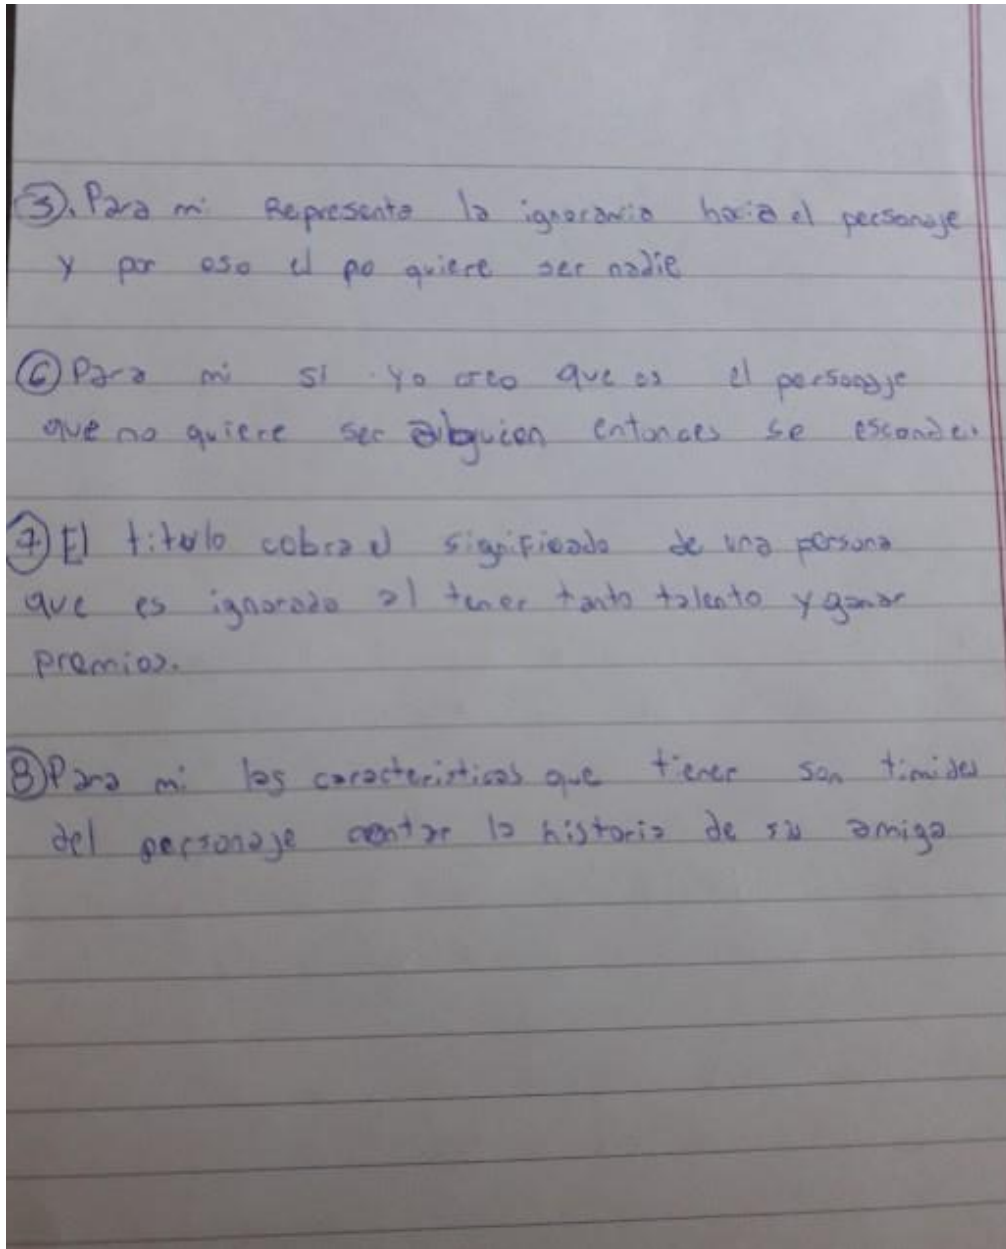 5). Para mi Representa la ignorancia hacia el personaje
y por eso el no quiere ser nadie
6) Para mi si yo creo que es el personaje
que no quiere ser alguien entonces se esconde.
7) El titulo cobra el significado de una persona
que es ignorado al tener tanto talento y ganar
premios.
8) Para mi las caracteristicas que tiener son timides
del personaje contar la historia de su amiga